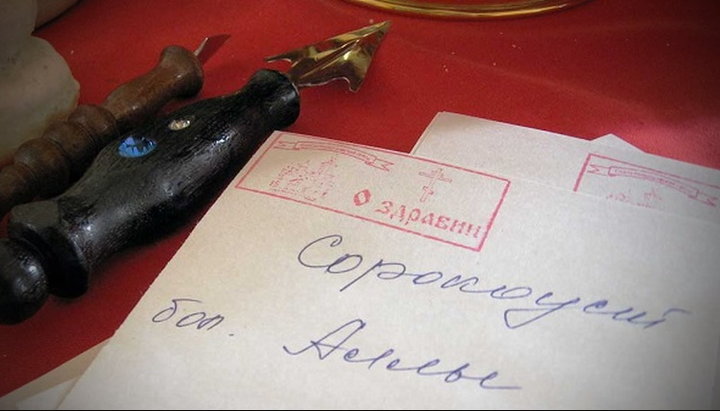 О ЗДРАВИИ
Сорокоуст
бол. Аллы